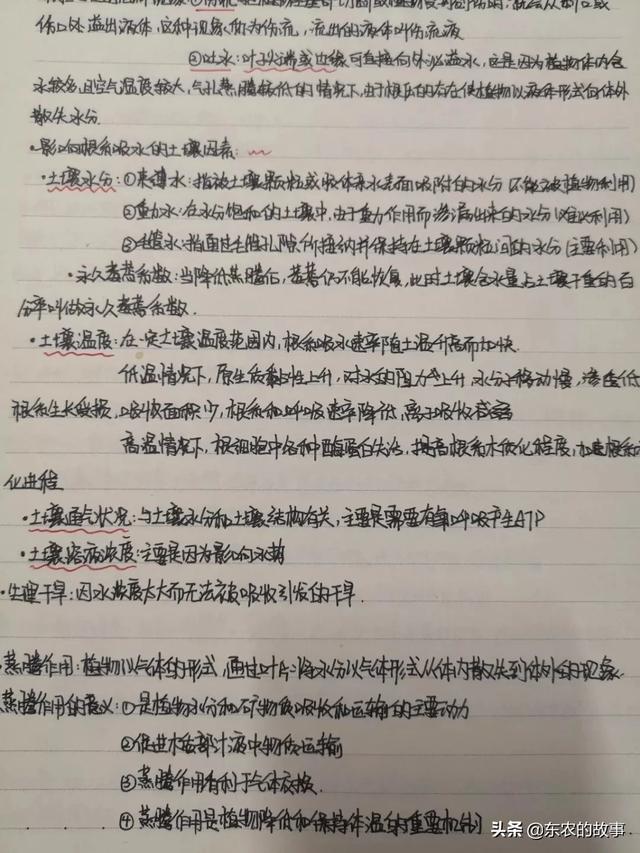 伤口处溢出液体,这种现象称为伤流,流出的液体叫伤流液
②吐水:叶尖端或边缘可直接向外泌溢水,这是因为植物体内含
水较多,且空气湿度较大,气孔蒸腾较低的情况下,由于根压的存在使植物以液体形式向体外
散失水分
·影响根系吸水的土壤因素:
·土壤水分:①束缚水:指被土壤颗粒或胶体亲水表面吸附的水分(不能被植物利用)
②重力水:在水分饱和的土壤中,由于重力作用而渗漏出来的水分(难以利用)
③毛管水:指由毛管孔隙所持纳并保持在土壤颗粒间的水分(主要利用)
·永久萎蔫系数:当降低蒸腾后,萎蔫仍不能恢复,此时土壤含水量占土壤干重的百
分率叫做永久萎蔫系数.
·土壤温度:在一定土壤温度范围内,根系吸水速率随土温升高而加快.
低温情况下,原生质黏性上升,对水的阻力上升,水分子移动慢,渗透低
根系生长受损,吸收面积少,根系和呼吸速率降低,离子吸收减弱
高温情况下,根细胞中各种酶蛋白失活,提高根系木质化程度,加速根系
化进程
·土壤通气状况:与土壤水分和土壤结构有关,主要是需要有氧呼吸产生ATP
·土壤溶液浓度:主要是因为影响水势
·生理干旱:因水浓度太大而无法被吸收引发的干旱.
·蒸腾作用:植物以气体的形式,通过叶片将水分以气体形式从体内散失到体外的现象.
蒸腾作用的意义:①是植物水分和矿物质吸收和运输的主要动力
②促进木质部汁液中物质运输
③蒸腾作用有利于气体交换.
④蒸腾作用是植物降低和保持体温的重要机制
头条 @东农的故事